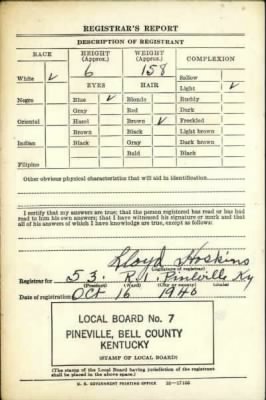 REGISTRAR'S REPORT
DESCRIPTION OF REGISTRANT
RACE HEIGHT (Approx.) WEIGHT (Approx.) COMPLEXION
White ✓ 6 158 Sallow
EYES HAIR Light ✓
Negro Blue ✓ Blonde Ruddy
Gray Red Dark
Oriental Hazel Brown ✓ Freckled
Brown Black Light brown
Indian Black Gray Dark brown
Bald Black
Filipino
Other obvious physical characteristics that will aid in identification
I certify that my answers are true; that the person registered has read or has had
read to him his own answers; that I have witnessed his signature or mark and that
all of his answers of which I have knowledge are true, except as follows:
Lloyd Hoskins
(Signature of registrar)
Registrar for 53 R.1. Pineville Ky
(Precinct) (Ward) (City or county) (State)
Date of registration Oct 16 1940
LOCAL BOARD No. 7
PINEVILLE, BELL COUNTY
KENTUCKY
(STAMP OF LOCAL BOARD)
(The stamp of the Local Board having jurisdiction of the registrant
shall be placed in the above space.)
U. S. GOVERNMENT PRINTING OFFICE 16—17105